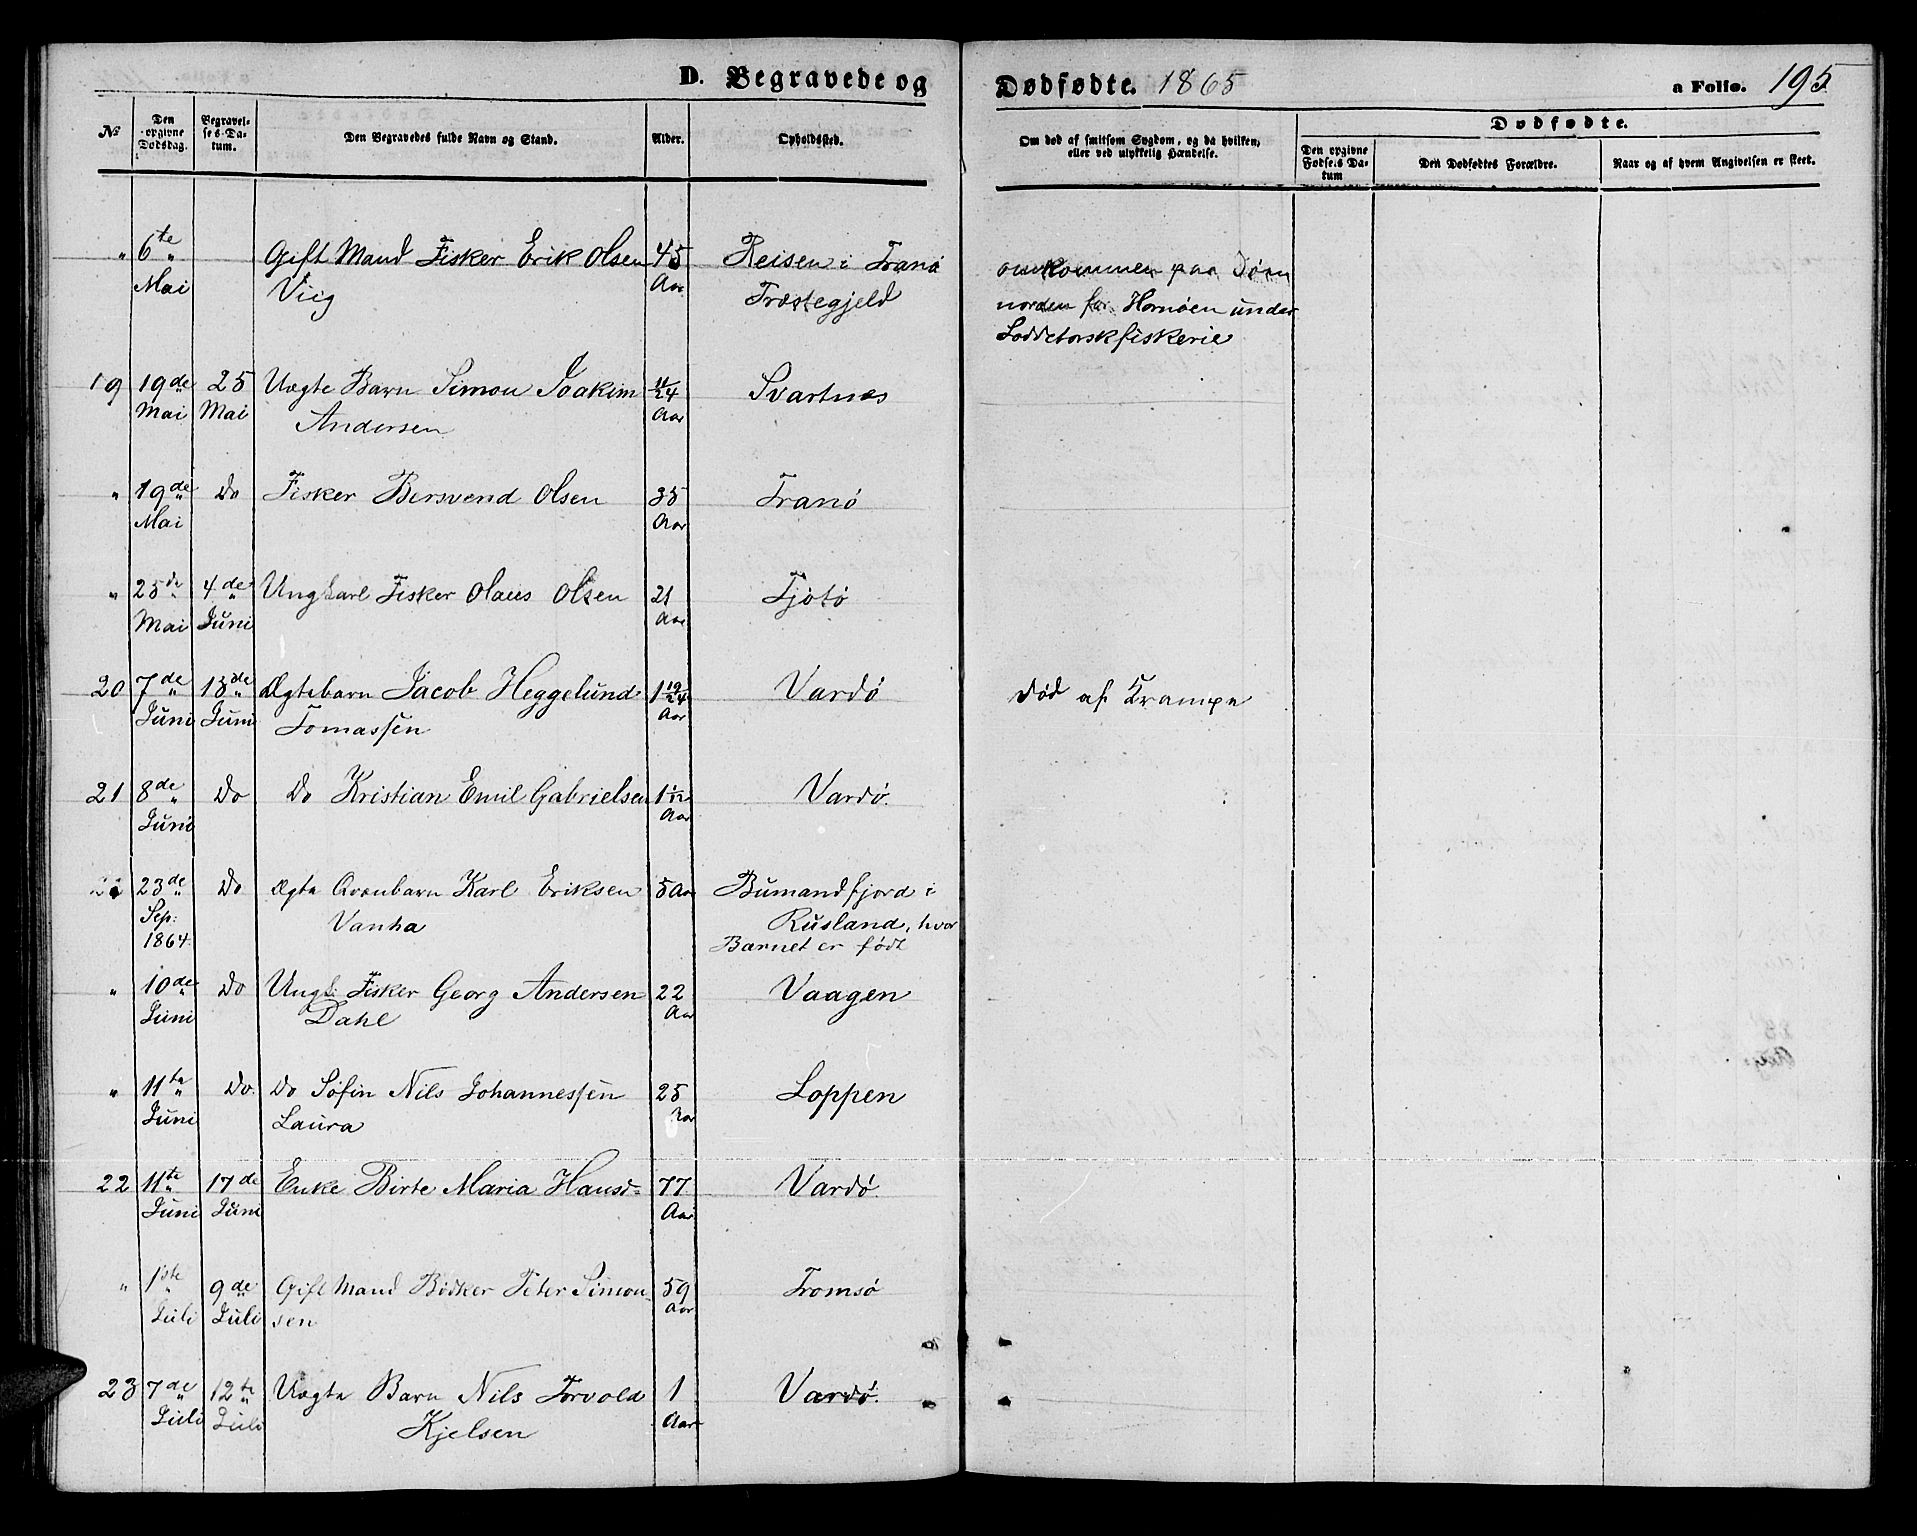 D. Begravede og Dødfødte. 1865 a Folio. 195
№ Den opgivne Dødsdag. Begravelses-Datum. Den Begravedes fulde Navn og Stand. Alder. Opholdssted. Om død af smitsom Sygdom, og da hvilken, eller ved ulykkelig Hændelse. Dødfødte. Den opgivne Fødsels Datum Den Dødfødtes Forældre. Naar og af hvem Angivelsen er skeet.
" 6te Gift Mand Fisker Erik Olsen 45 Reisen i Tranø omkommen paa Søen
Mai Viig Aar Præstegjeld norden for Hornøen under
Loddetorskfiskerie
19 19de 25 Uægte Barn Simon Joakim 11/24 Svartnæs
Mai Mai Andersen Aar
" 19de Do Fisker Bersvend Olsen 35 Tranø
Mai Aar
" 25de 4de Ungkarl Fisker Olaus Olsen 21 Tjøtø
Mai Juni Aar
20 7de 13de Ægtebarn Jacob Heggelund 1 19/24 Vardø Død af Krampe
Juni Juni Tomassen Aar
21 8de Do Do Kristian Emil Gabrielsen 1 1/12 Vardø.
Juni Aar
23de Do Ægte Qvænbarn Karl Eriksen 5 Aar Bumandfjord i
Sep: Vanha Rusland, hvor
1864 Barnet er født
" 10de Do Ungk. Fisker Georg Andersen 22 Vaagen
Juni Dahl Aar
" 11te Do. Do Søfin Nils Johannessen 25 Loppen
Juni Laura Aar
22 11te 17de Enke Birte Maria Hansd- 77 Vardø.
Juni Juni Aar
" 1ste 9de Gift Mand Bødker Peter Simon- 59 Tromsø
Juli Juli sen Aar
23 7de 12te Uægte Barn Nils Torvold 1 Vardø.
Juli Juli Kjelsen Aar